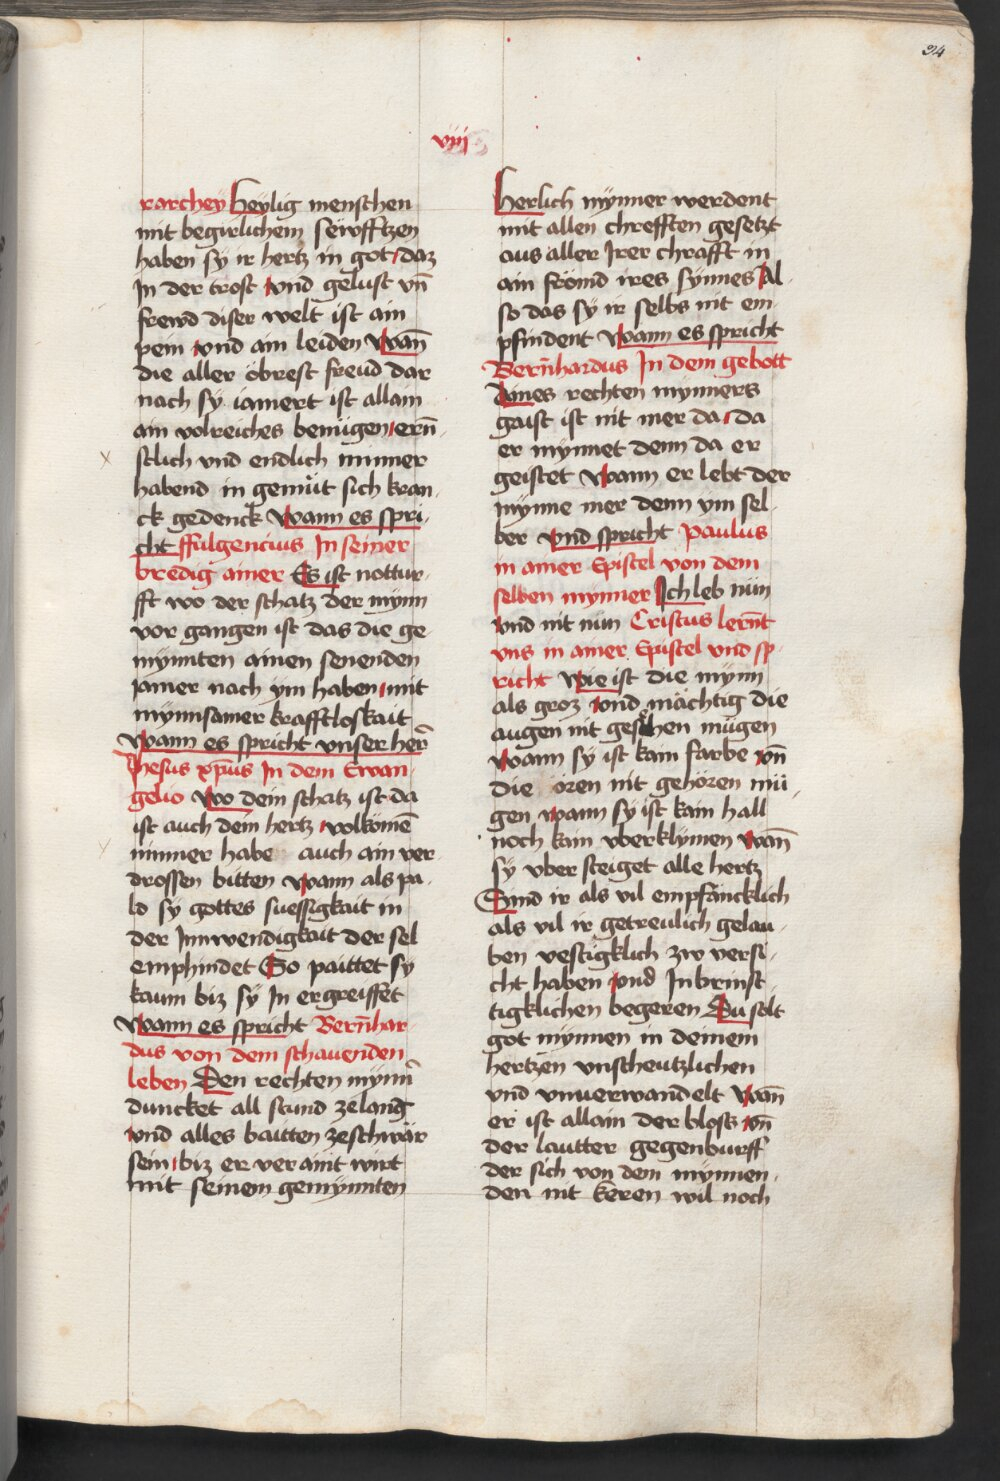 94
viij
rarchey heylig menschen
mit begirlichem sewfftzen
haben sy ir hertz in got daz
In der trost vnd gelust vn̄
frewd diser welt ist ain
pein vnd ain leiden wan̄
die aller öbrest freud dar
nach sy iamert ist allain
ain volreiches benügen ern̄
stlich vnd endlich mynner
habend in gemüt sich kran
ck gedenck wann es spri
cht ffulgencius In seiner
bredig ainer Es ist nottur
fft wo der schatz der mynn
vor gangen ist das die ge
mynnten ainen senenden
Jamer nach ym haben mit
mynnsamer krafftloskait
wann es spricht vnser her̄
Jhesus xp̄us In dem Ewan
gelio wo dein schatz ist da
ist auch dein hertz volkomē
mynner habe auch ain ver
drossen bitten wann als pa
ld sy gottes suessigkait in
der Innwendigkait der sel
emphindet So paittet sy
kaum biz sy In ergreiffet
wann es spricht Bern̄har
dus von dem schauenden
leben Den rechten mynn̄
duncket all stund zelang
vnd alles bautten zeschwär
sein biz er veraint wirt
mit seinem gemynnten
herlich mynner werdent
mit allen chrefften gesetzt
aus aller Irer chrafft in
ain frömd ires synnes Al
so das sy ir selbs nit em
pfindent wann es spricht
Bern̄hardus In dem gebott
Aines rechten mynners
gaist ist nit mer da da
er mynnet denn da er
geistet wann er lebt der
mynne mer denn ym sel
ber vnd spricht Paulus
in ainer Epistel von dem
selben mynner Ich leb nün
vnd nit nün Cristus lern̄t
vns in ainer Epistel vnd sp
richt wie ist die mynn
als groz vnd mächtig die
augen nit gesehen mügen
wann sy ist kain farbe vn̄
die oren nit gehören mü
gen wann sy ist kain hall
noch kain vberklymen wan̄
sy vber steiget alle hertz
Sind ir als vil empfäncklich
als vil ir getreulich gelau
ben vestigklich zw versi
cht haben vnd Inbrinst
tigklichen begeren Du solt
got mynnen in deinem
hertzen vnscheutzlichen
vnd vnuerwandelt wan̄
er ist allain der bloss vn̄
der lautter gegenburff
der sich von dem mynnen
den nit keren wil noch